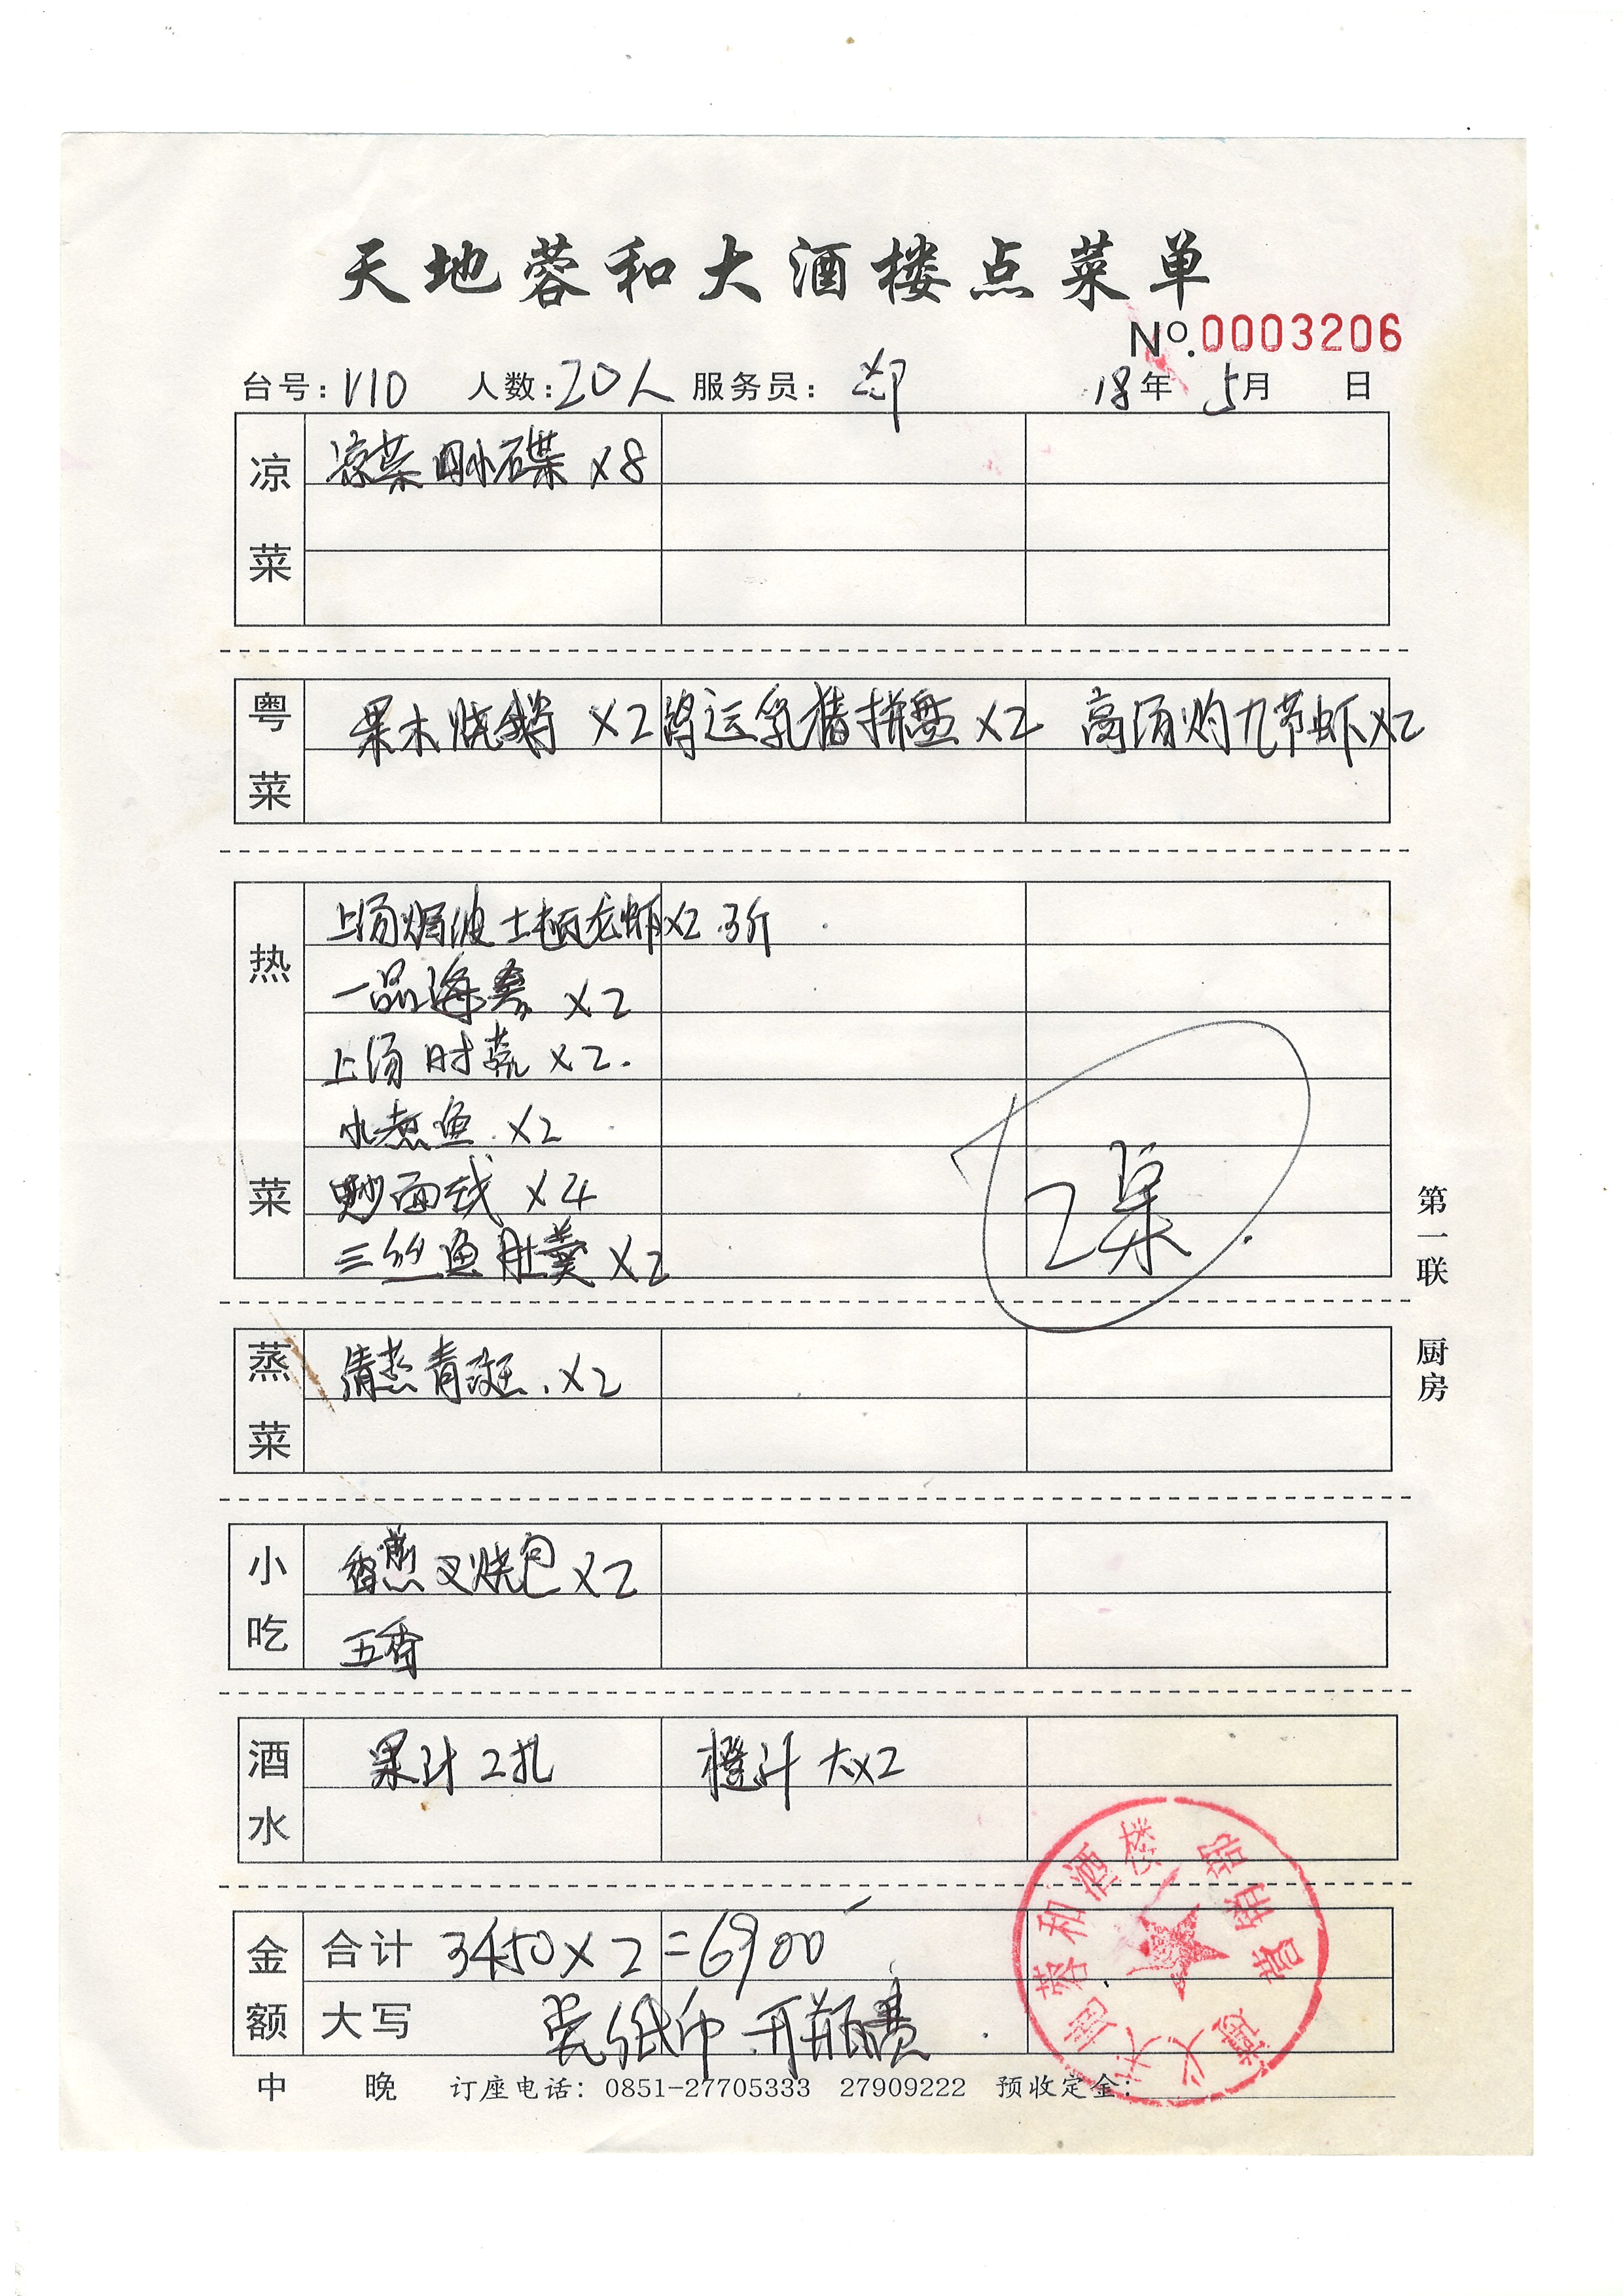 天地蓉和大酒楼点菜单
No.0003206
台号: V10 人数: 20人 服务员: 郑 18年 5月 日
凉菜 凉菜 小碟 ×8
粤菜 果木烧鹅 ×2 鸿运乳猪拼盘 ×2 高汤灼九节虾×2
热菜 上汤焗波士顿龙虾×2 .3斤
一品海参 ×2
上汤时蔬 ×2.
水煮鱼 ×2
炒面线 ×4
三丝鱼肚羹 ×2
2桌.
第一联 厨房
蒸菜 清蒸青斑 ×2
小吃 香煎叉烧包 ×2
五香
酒水 果汁 2扎 橙汁 大×2
金额 合计 3450×2=6900
大写 免纸巾 开瓶费
中 晚 订座电话: 0851-27705333 27909222 预收定金:
遵义天地蓉和酒楼